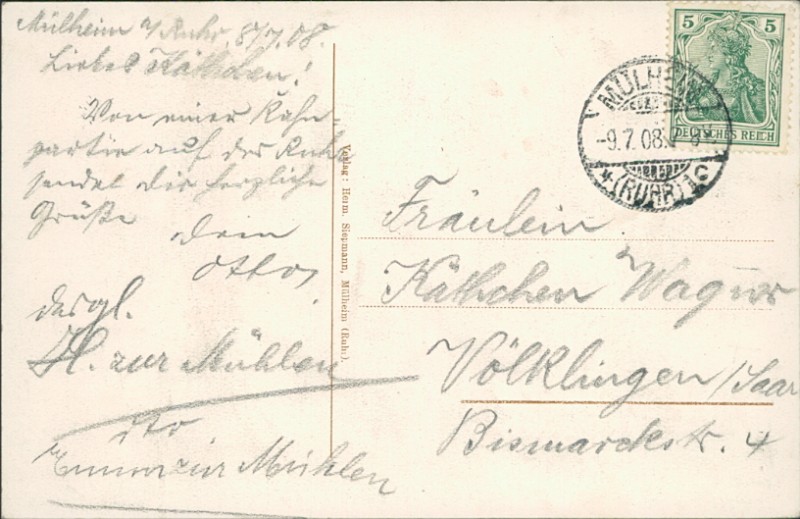 Mülheim a/Ruhr. 8/7.08.
Liebes Käthchen!
Von einer Kahn
partie auf der Ruhr
sendet dir herzliche
Grüße
dein
Otto,
desgl.
H. zur Mühlen
dto
Emma zur Mühlen
Verlag: Heinr. Siepmann, Mülheim (Ruhr).
5 5
DEUTSCHES REICH
MÜLHEIM
-9.7.08.
(RUHR) * C
Fräulein
Käthchen Wagner
Völklingen/Saar
Bismarckstr. 4